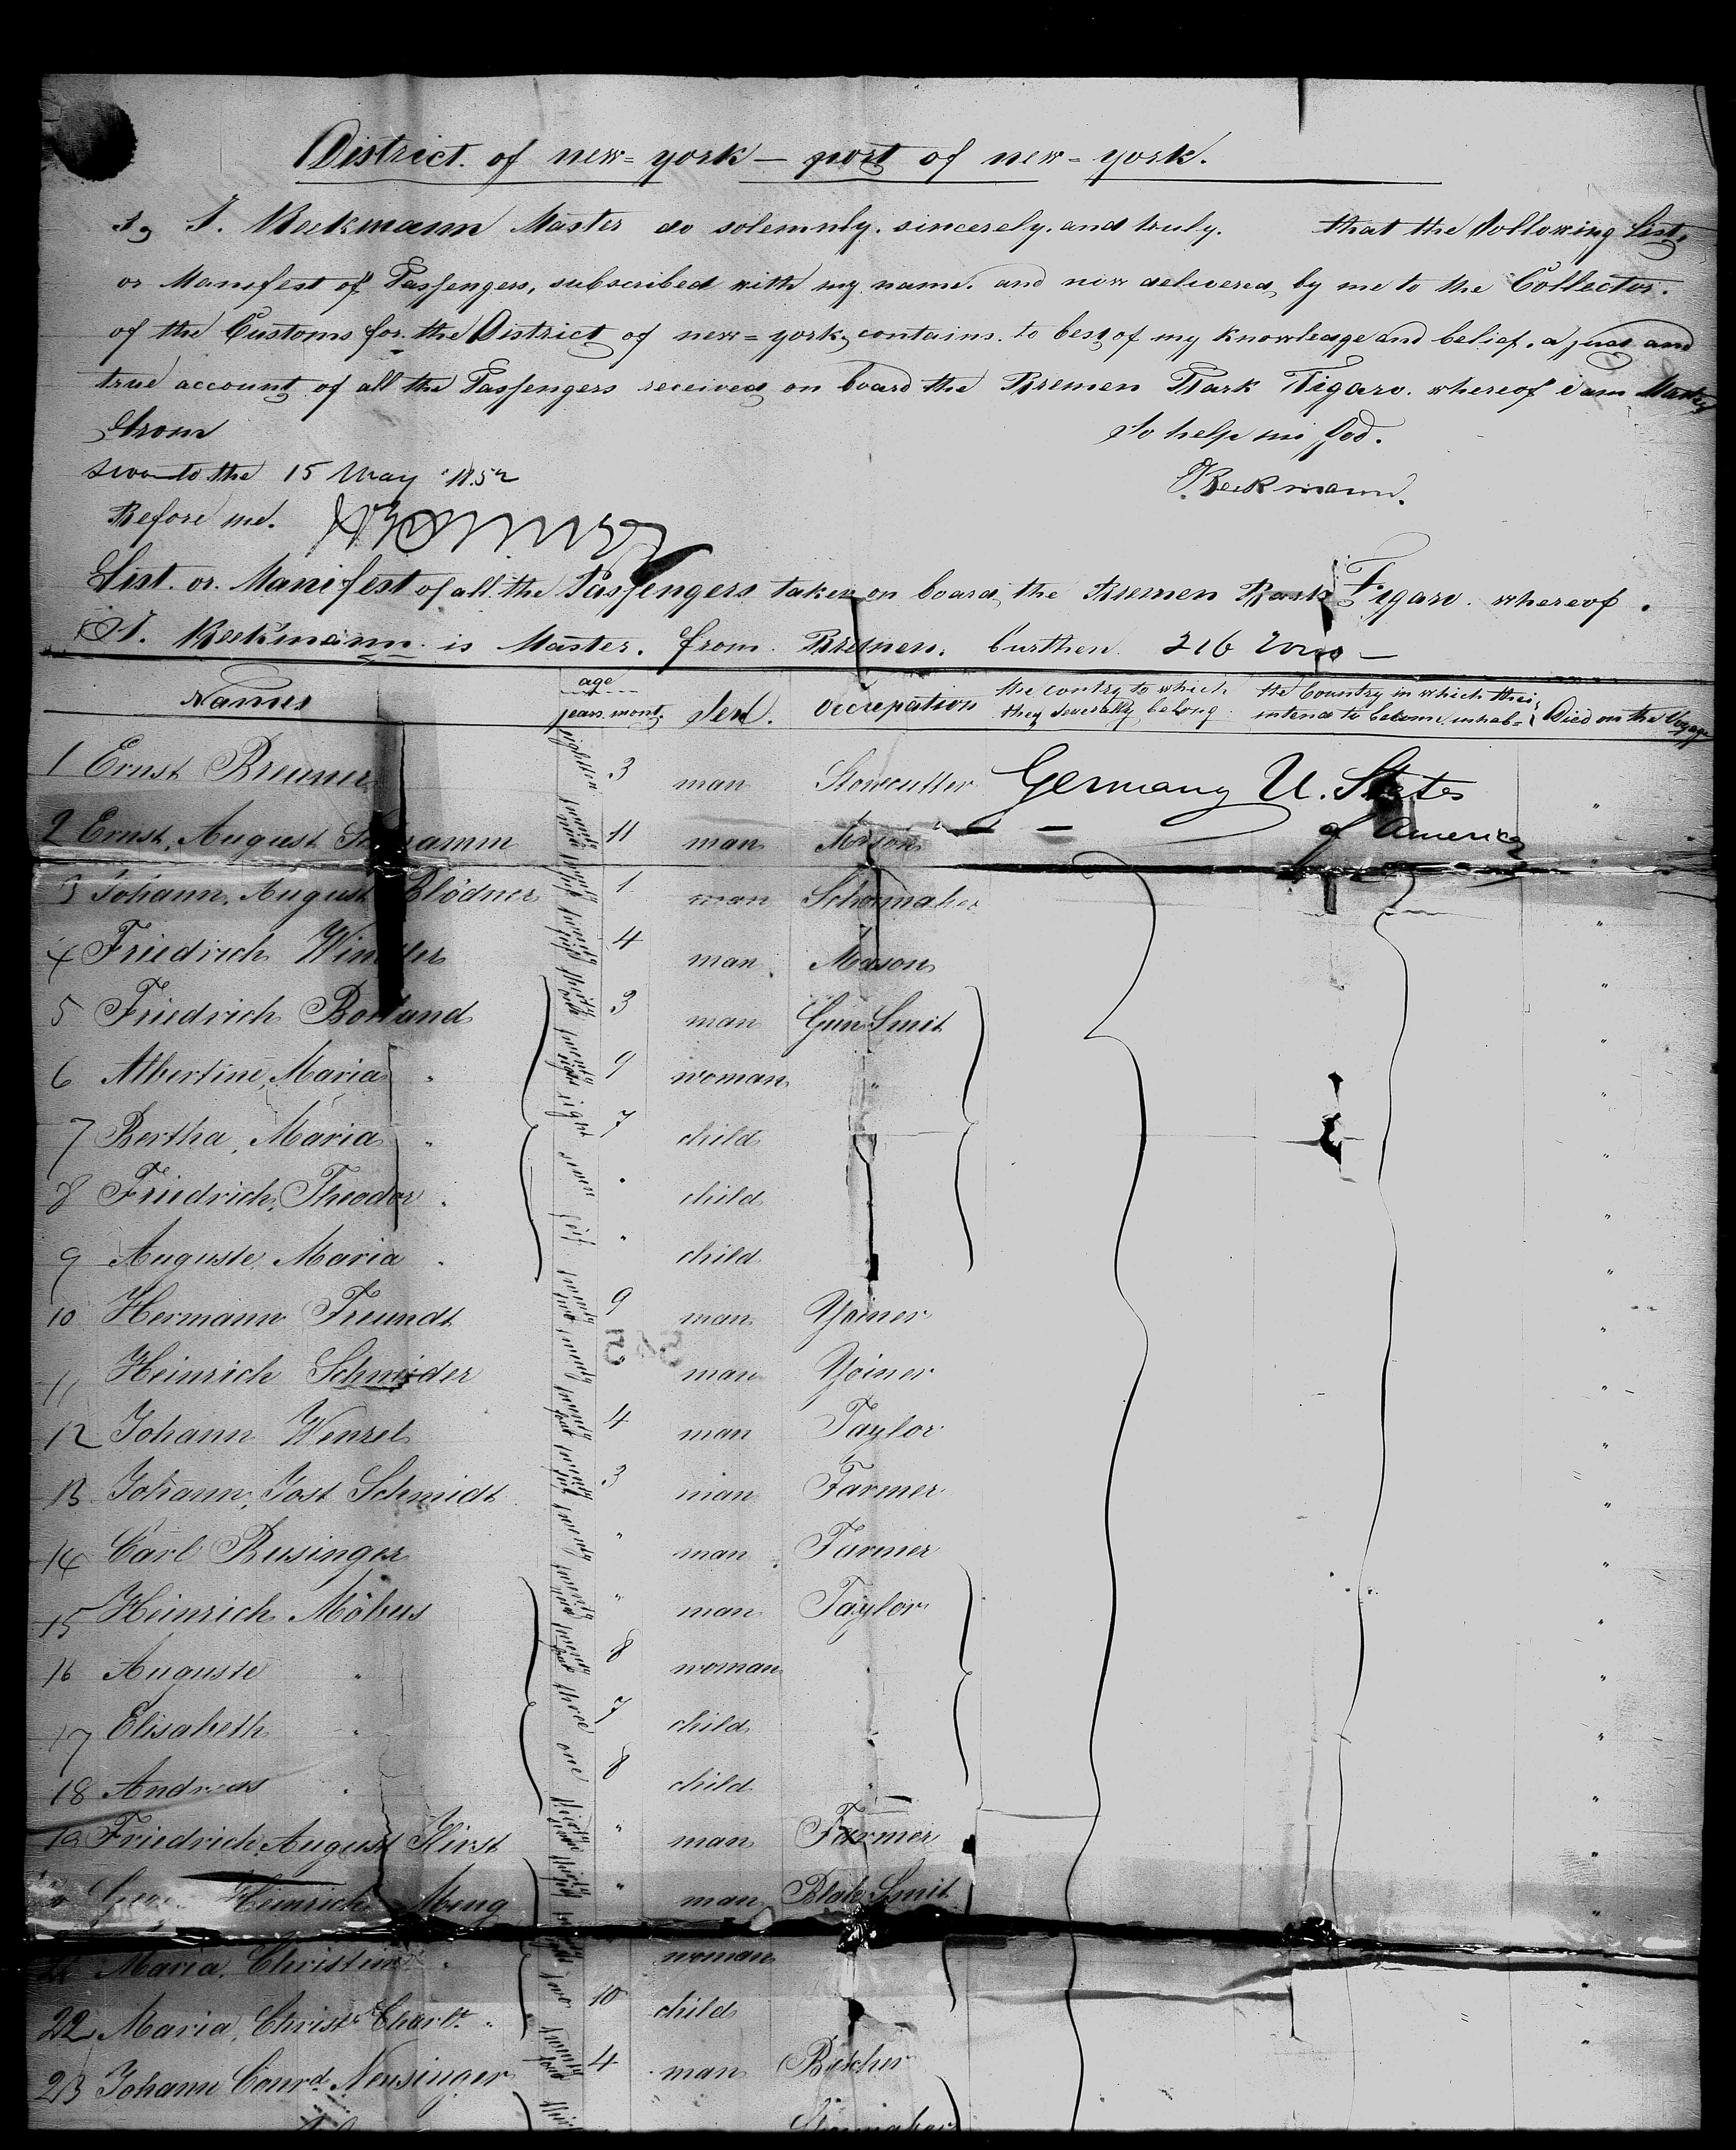 District. of new=york — port of new=york.
I, J. Beekmann Master do solemnly. sincerely. and truly. that the following List,
or Manifest of Passengers, subscribed with my name. and now delivered, by me to the Collector.
of the Customs for. the District of new=york, contains. to best of my knowledge and belief. a just and
true account of all the Passengers received on board the Bremen Bark Figaro. whereof i am Master
from So help mi God.
to the 15 May 1852 Beekmann.
Before me.
List. or. Manifest of all the Passengers taken on board, the Bremen Bark Figaro. whereof.
J. Beekmann is Master. from. Bremen. burthen. 216 Tons —
Names age years. mont. Sex. occupation the contry to which they severally belong the Country in which their intend to become inhab= Died on the Voyage
1 Ernst Breuner eighteen 3 man Stonecutter Germany U. States
2 Ernst, August Schramm 11 man Mason of America
3 Johann, August Blödner 1 man Schoemaker
4 Friedrich Winkler 4 man Mason
5 Friedrich Borland 3 man Gun Smit
6 Albertine, Maria " twenty eight 9 woman "
7 Bertha, Maria " eight 7 child
8 Friedrich, Theodor " seven " child
9 Auguste, Maria " " child
10 Hermann Freundt 9 man Yoiner
11 Heinrich Schneider twenty man Yoiner
12 Johann Wenzel 4 man Taylor
13 Johann, Jost Schmidt 3 man Farmer
14 Carl Beusinger twenty " man Farmer
15 Heinrich Möbus " man Taylor
16 Auguste " 8 woman "
17 Elisabeth " three 7 child "
18 Andreas " one 8 child "
19 Friedrich August Hirst " man Farmer
Heinrich Meng " man Blak Smit
Maria, Christine " woman
22 Maria, Christ. Charlt. " two 10 child
23 Johann Conrd. Neusinger 4 man Butcher